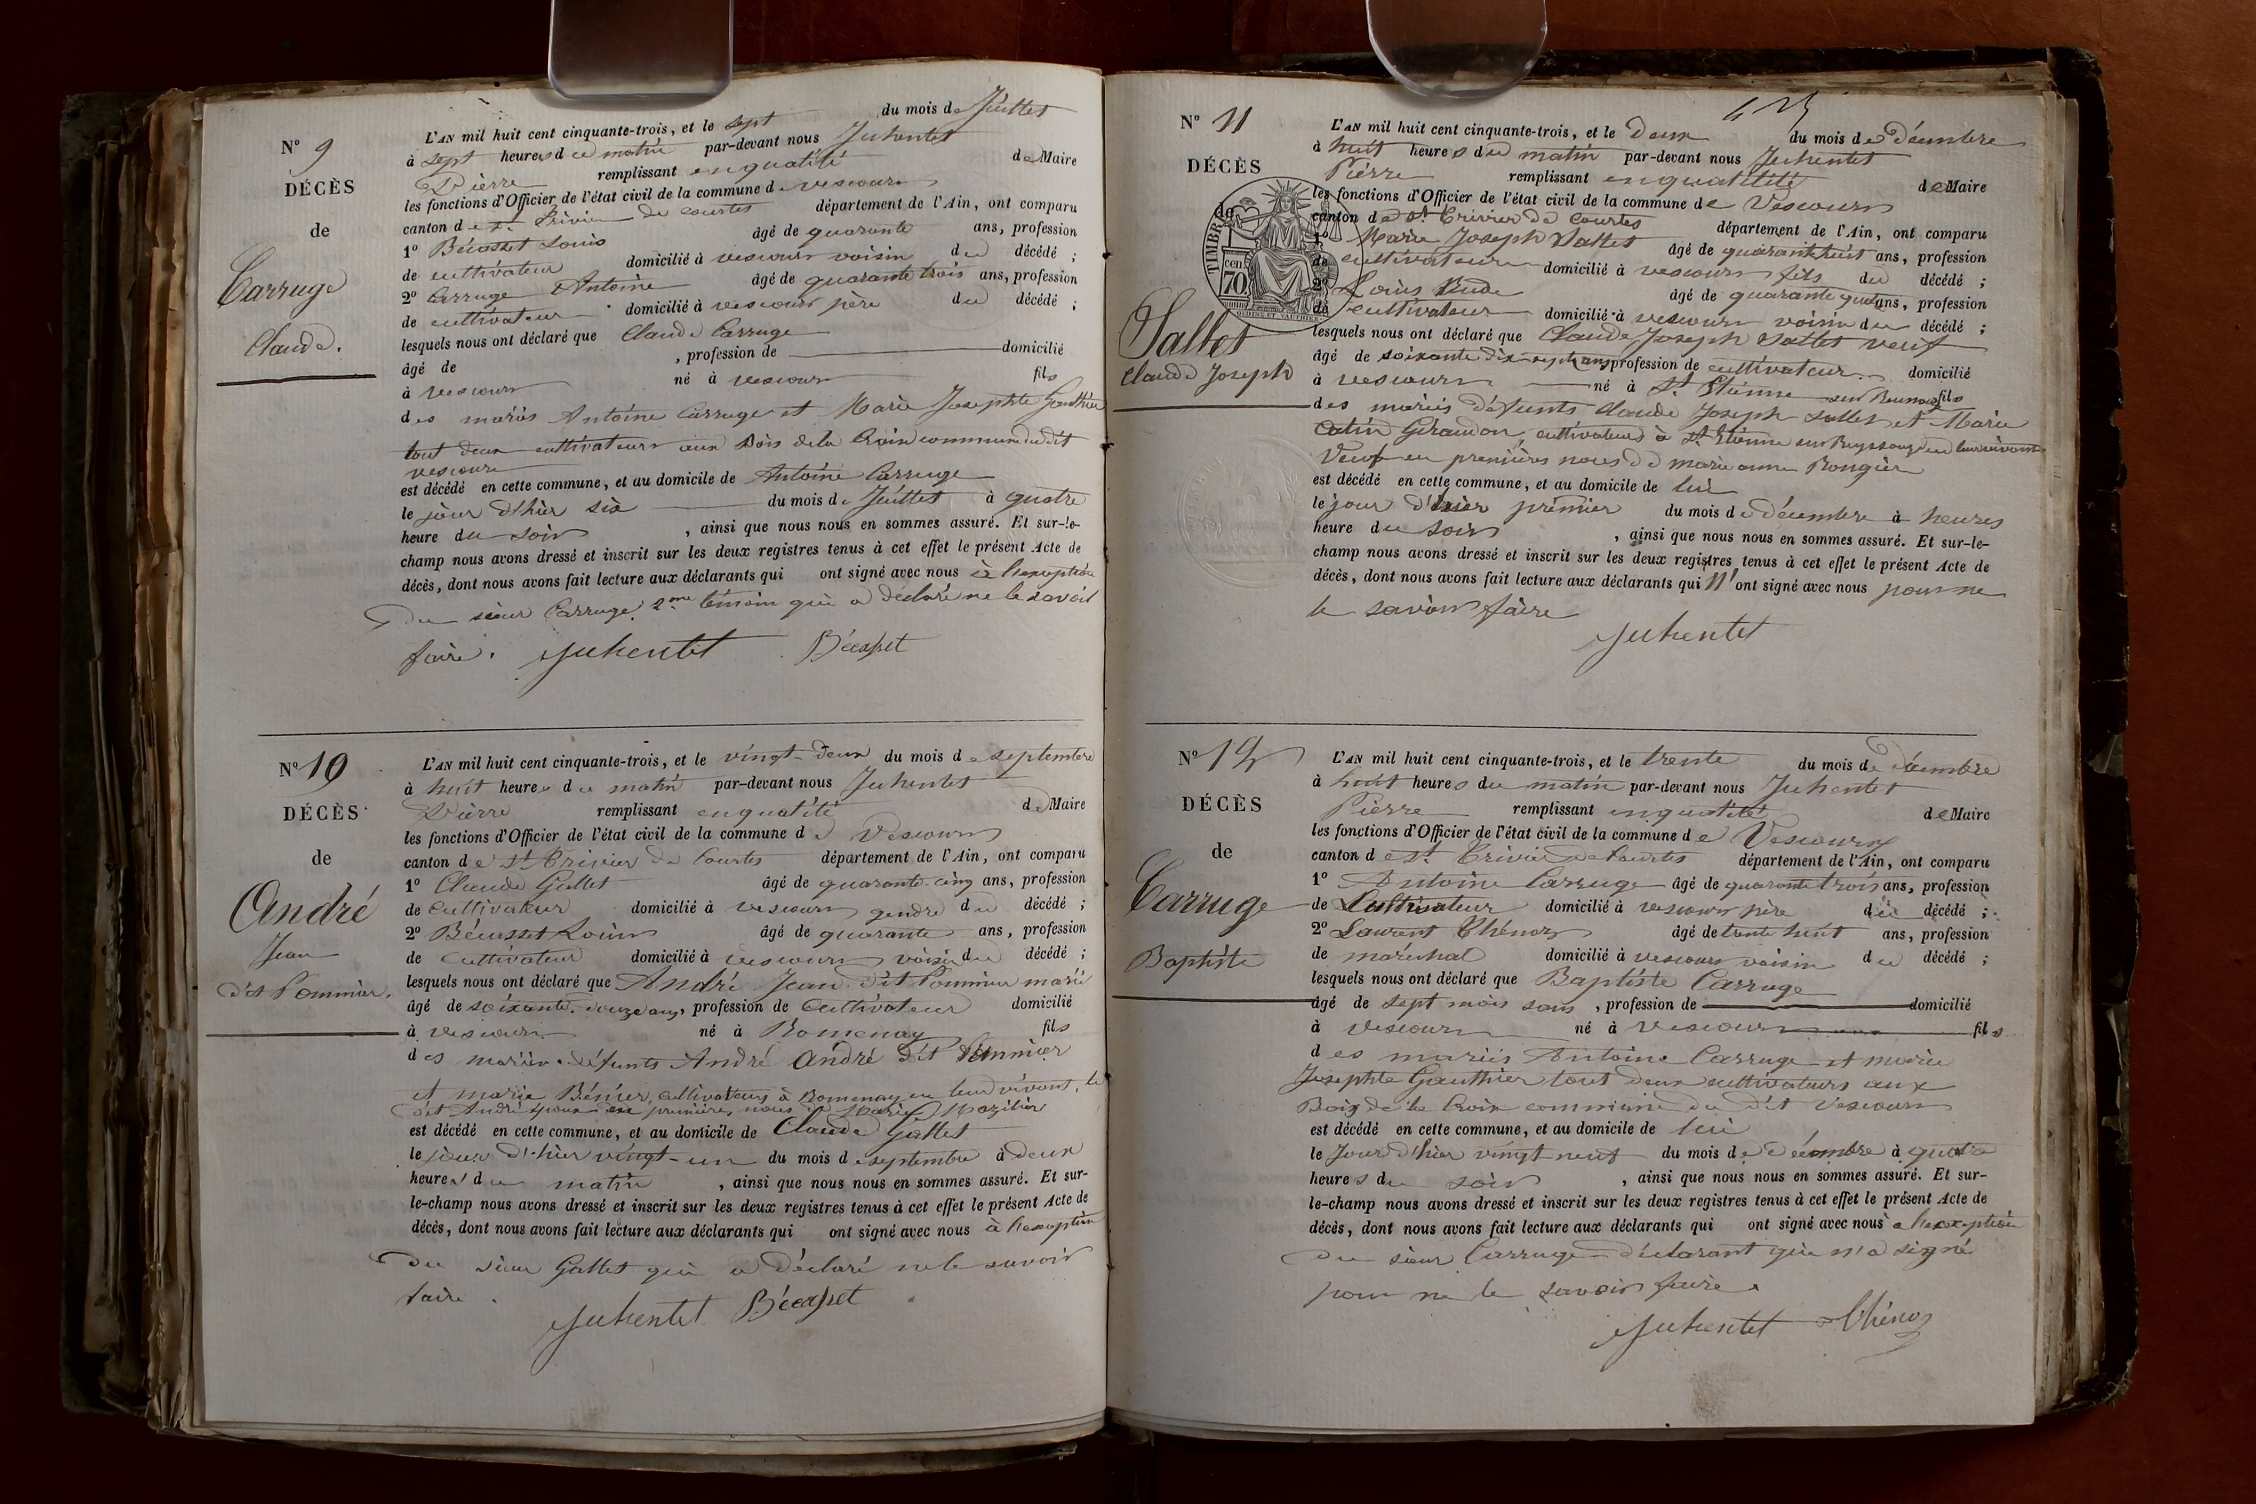 N° 9
DÉCÈS
de
Carruge
Claude.
L'AN mil huit cent cinquante-trois, et le sept du mois de Juillet
à sept heures du matin par-devant nous Juhentet
Pierre remplissant en qualité de Maire
les fonctions d'Officier de l'état civil de la commune de vescours
canton de St. Trivier de Courtes département de l'Ain, ont comparu
1° Bécasset Louis âgé de quarante ans, profession
de cultivateur domicilié à vescours voisin du décédé ;
2° Carruge Antoine âgé de quarante trois ans, profession
de cultivateur domicilié à vescours père du décédé ;
lesquels nous ont déclaré que Claude Carruge
âgé de , profession de domicilié
à vescours né à vescours fils
des mariés Antoine Carruge et Marie Josephte Gauthier
tout deux cultivateurs aux Bois de la Croix commune du dit
vescours
est décédé en cette commune, et au domicile de Antoine Carruge
le jour d'hier six du mois de Juillet à quatre
heure du soir , ainsi que nous nous en sommes assuré. Et sur-le-
champ nous avons dressé et inscrit sur les deux registres tenus à cet effet le présent Acte de
décès, dont nous avons fait lecture aux déclarants qui ont signé avec nous à l'exception
du sieur Carruge 2me témoin qui a déclaré ne le savoir
faire. Juhentet Bécasset
N° 10
DÉCÈS
de
André
Jean
dit Pommier.
L'AN mil huit cent cinquante-trois, et le vingt-deux du mois de septembre
à huit heures du matin par-devant nous Juhentet
Pierre remplissant en qualité de Maire
les fonctions d'Officier de l'état civil de la commune de Vescours
canton de St Trivier de Courtes département de l'Ain, ont comparu
1° Claude Gallet âgé de quarante-cinq ans, profession
de cultivateur domicilié à vescours gendre du décédé ;
2° Bécasset Louis âgé de quarante ans, profession
de cultivateur domicilié à vescours voisin du décédé ;
lesquels nous ont déclaré que André Jean dit Pommier marié
âgé de soixante-douze ans, profession de cultivateur domicilié
à vescours né à Romenay fils
des mariés défunts André André dit Pommier
et marie Bénier, cultivateurs à Romenay en leur vivant, le
dit André époux en premières noces de Marie Mazilier
est décédé en cette commune, et au domicile de Claude Gallet
le jour d'hier vingt-un du mois de septembre à deux
heures du matin , ainsi que nous nous en sommes assuré. Et sur-
le-champ nous avons dressé et inscrit sur les deux registres tenus à cet effet le présent Acte de
décès, dont nous avons fait lecture aux déclarants qui ont signé avec nous à l'exception
du sieur Gallet qui a déclaré ne le savoir
faire. Juhentet Bécasset
N° 11
DÉCÈS
de
TIMBRE
cen 70
Sallet
Claude Joseph
L'AN mil huit cent cinquante-trois, et le Deux du mois de décembre
à huit heures du matin par-devant nous Juhentet
Pierre remplissant en qualité de Maire
les fonctions d'Officier de l'état civil de la commune de Vescours
canton de St Trivier de Courtes département de l'Ain, ont comparu
1° Marie Joseph Sallet âgé de quarante huit ans, profession
de cultivateur domicilié à vescours fils du décédé ;
2° Louis âgé de quarante quatre ans, profession
de cultivateur domicilié à vescours voisin du décédé ;
lesquels nous ont déclaré que Claude Joseph Sallet veuf
âgé de soixante dix-sept ans profession de cultivateur domicilié
à vescours né à St. Etienne sur Reyssouze fils
des mariés défunts Claude Joseph Sallet et Marie
Catin Giraudon, cultivateurs à St. Etienne sur Reyssouze en leur vivant
Veuf en premières noces de marie anne Rongier
est décédé en cette commune, et au domicile de lui
le jour d'hier premier du mois de décembre à heures
heure du soir , ainsi que nous nous en sommes assuré. Et sur-le-
champ nous avons dressé et inscrit sur les deux registres tenus à cet effet le présent Acte de
décès, dont nous avons fait lecture aux déclarants qui n'ont signé avec nous pour ne
le savoir faire
Juhentet
N° 12
DÉCÈS
de
Carruge
Baptiste
L'AN mil huit cent cinquante-trois, et le trente du mois de décembre
à huit heures du matin par-devant nous Juhentet
Pierre remplissant en qualité de Maire
les fonctions d'Officier de l'état civil de la commune de Vescours
canton de St. Trivier de Courtes département de l'Ain, ont comparu
1° Antoine Carruge âgé de quarante trois ans, profession
de Cultivateur domicilié à vescours père du décédé ;
2° Laurent Thénoz âgé de trente huit ans, profession
de maréchal domicilié à vescours voisin du décédé ;
lesquels nous ont déclaré que Baptiste Carruge
âgé de sept mois sans , profession de domicilié
à vescours né à vescours fils
des mariés Antoine Carruge et marie
Josephte Gauthier tout deux cultivateurs aux
Bois de la Croix commune du dit Vescours
est décédé en cette commune, et au domicile de lui
le Jour d'hier vingt neuf du mois de décembre à quatre
heures du soir , ainsi que nous nous en sommes assuré. Et sur-
le-champ nous avons dressé et inscrit sur les deux registres tenus à cet effet le présent Acte de
décès, dont nous avons fait lecture aux déclarants qui ont signé avec nous a l'exception
du sieur Carruge déclarant qui n'a signé
pour ne le savoir faire.
Juhentet Thénoz